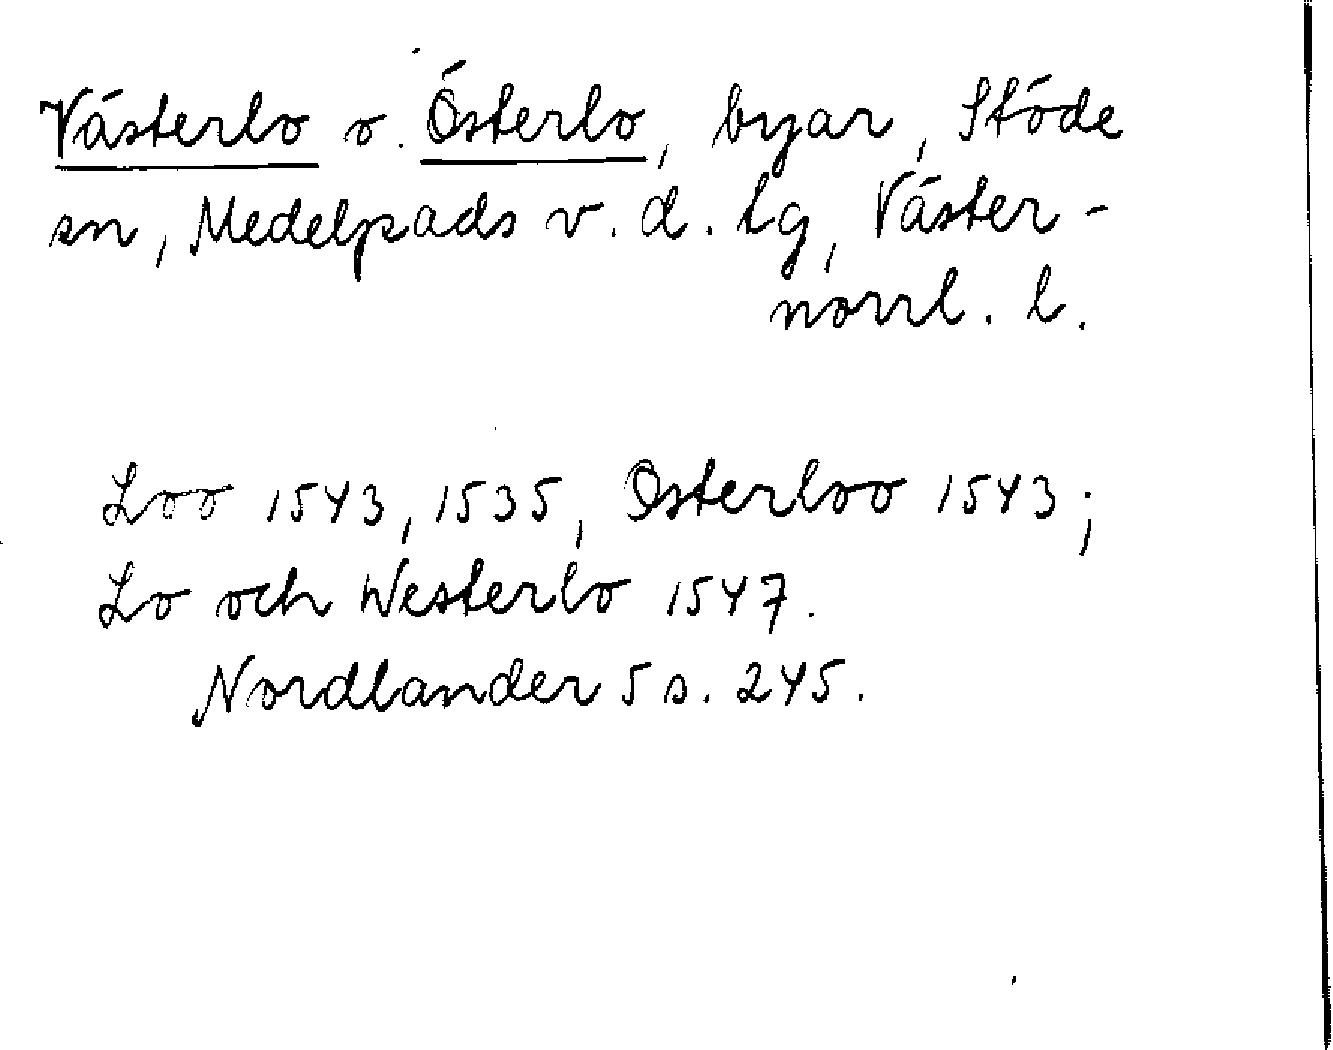 Västerlo o. Österlo, byar, Stöde
sn, Medelpads v. d. lg, Väster-
norrl. l.
Loo 1543, 1535, Osterloo 1543;
Lo och Westerlo 1547.
Nordlander 5 s. 245.